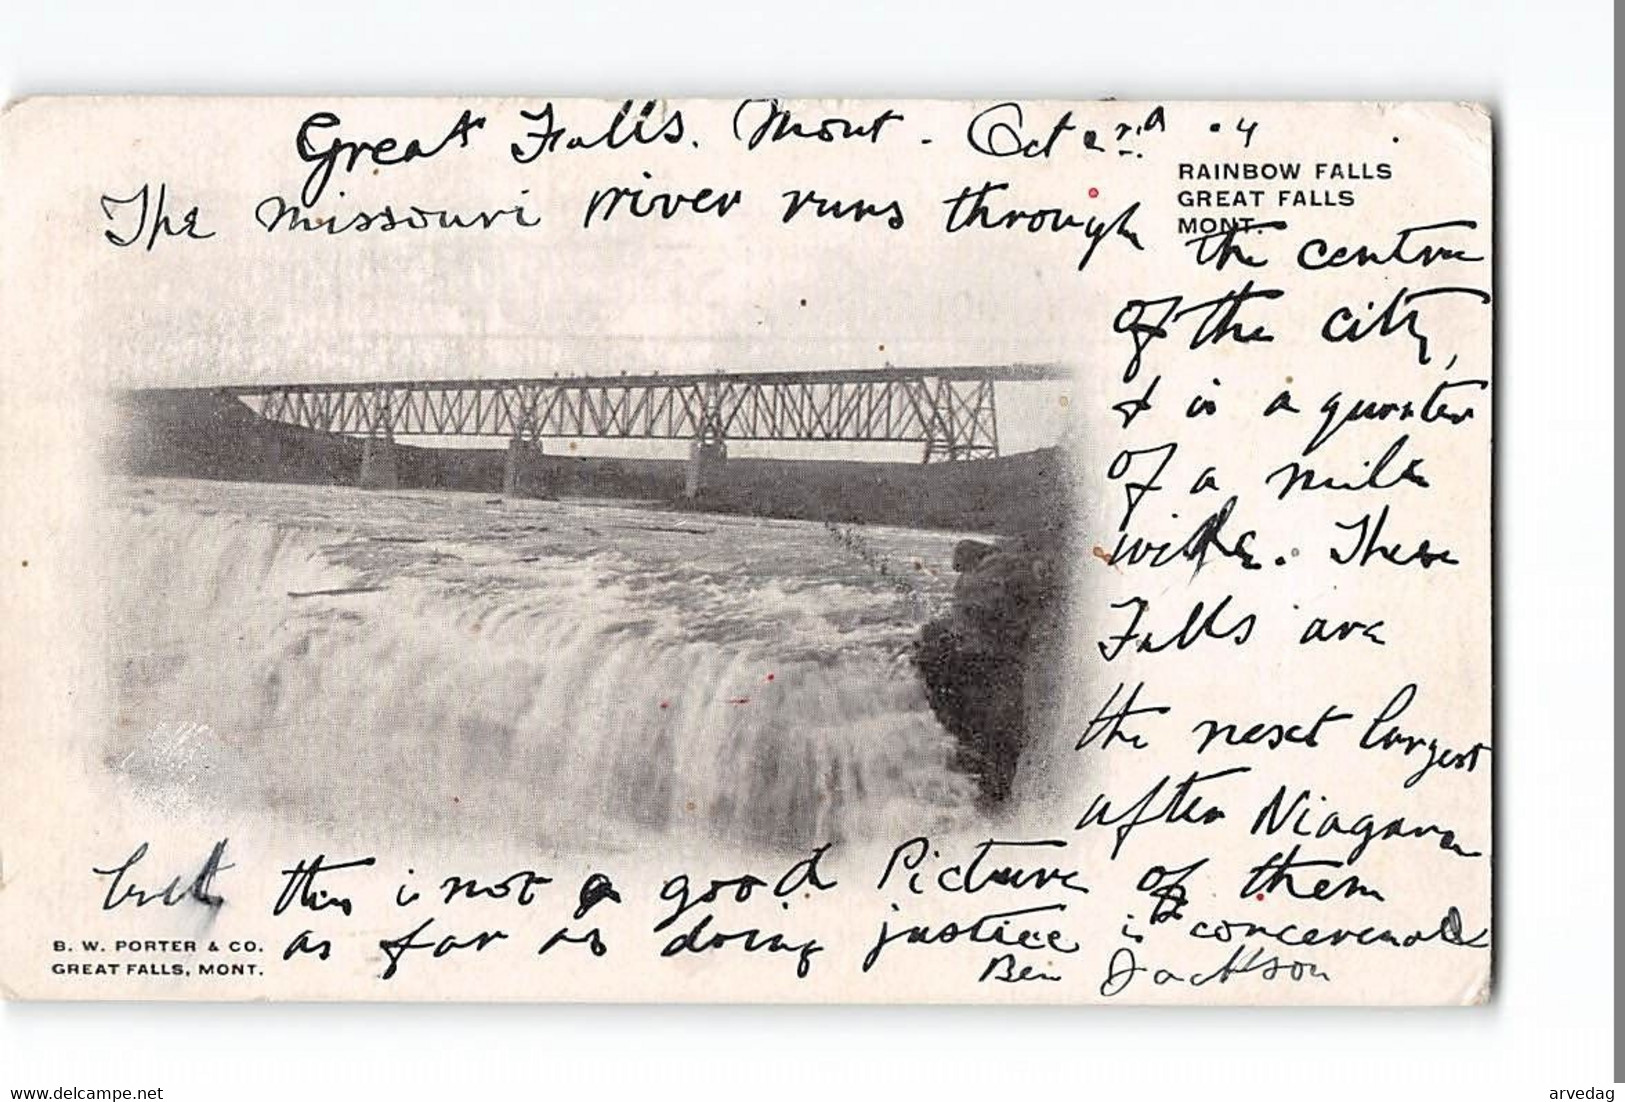 Great Falls. Mont. Oct 2nd .4
RAINBOW FALLS
GREAT FALLS
MONT.
The missouri river runs through
the centre
of the city,
& is a quarter
of a mile
wide. These
Falls are
the next largest
after Niagara
but this is not a good Picture of them
as far as doing justice is concerened
Ben Jackson
B. W. PORTER & CO.
GREAT FALLS, MONT.
delcampe.net
arvedag